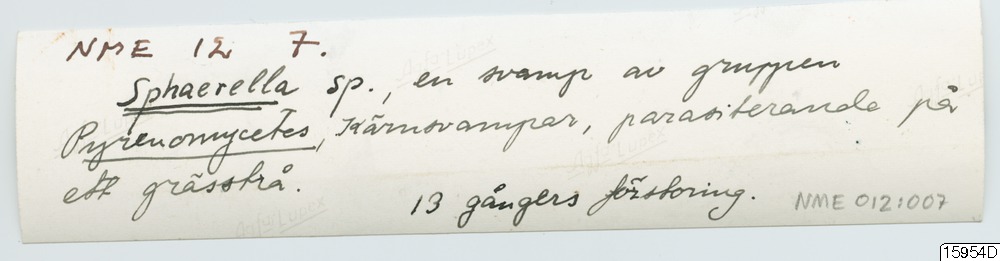 NME 12 7.
Sphaerella sp., en svamp av gruppen
Pyrenomycetes, Kärnsvampar, parasiterande på
ett grässtrå.
13 gångers förstoring.
NME 012:007
Agfa Lupex
15954D